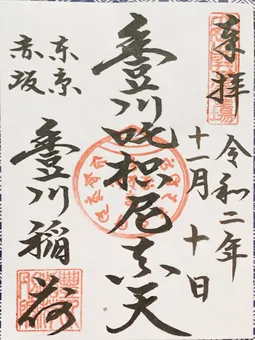 奉拝
令和二年
十一月十日
豊川吒枳尼真天
東京
赤坂
豊川稲荷